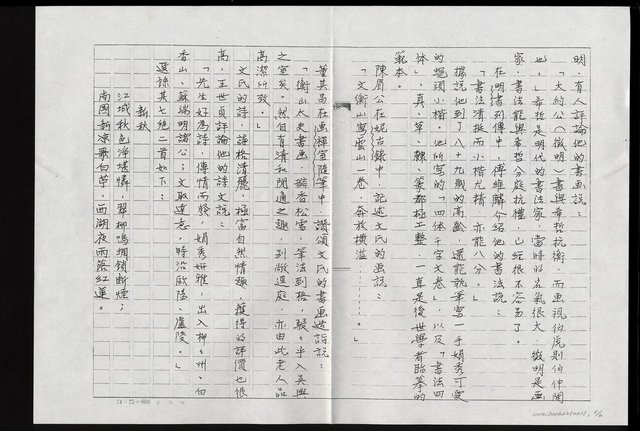 明,有人評論他的書畫說:
「太約公(徵明)書與希哲抗衡,而画視伯虎則伯仲間
也。」希哲是明代的書法家,當時的名氣很大,徵明是画
家,書法能與希哲分庭抗禮,已經很不容易了。
在明詩列傳中,傅維麟介紹他的書法說:
「書法清挺而小楷尤精,亦能八分。」
據說他到了八十九歲的高齡,還能執筆寫一手娟秀可愛
的蠅頭小楷。他所寫的「四体千字文卷」,以及「書法四
体」,真、草、隸、篆都極工整,一直是後世學者臨摹的
範本。
陳眉公在妮古錄中,記述文氏的画說:
「文衡山寫雲山一卷,奔放橫溢………。」
董其昌在画禪室隨筆中,讚頌文氏的書画造詣說:
「衡山太史書画,語香松雪,筆法到格,駸々半入吳興
之室矣。然自有清和閒適之趣,別敞逕庭,亦由此老人品
高潔所致。」
文氏的詩,語格清麗,極富自然情趣,獲得的評價也很
高,王世貞評論他的詩文說:
「先生好為詩,傳情而發,娟秀妍雅,出入柳々州、白
香山、蘇端明諸公;文取達意,時沿歐陽、廬陵。」
選錄其七絕二首如下:
新秋
江城秋色淨堪憐,翠柳鳴蜩鎖斷煙;
南國新涼歌白苧,西湖夜雨落紅蓮。
24×25=600